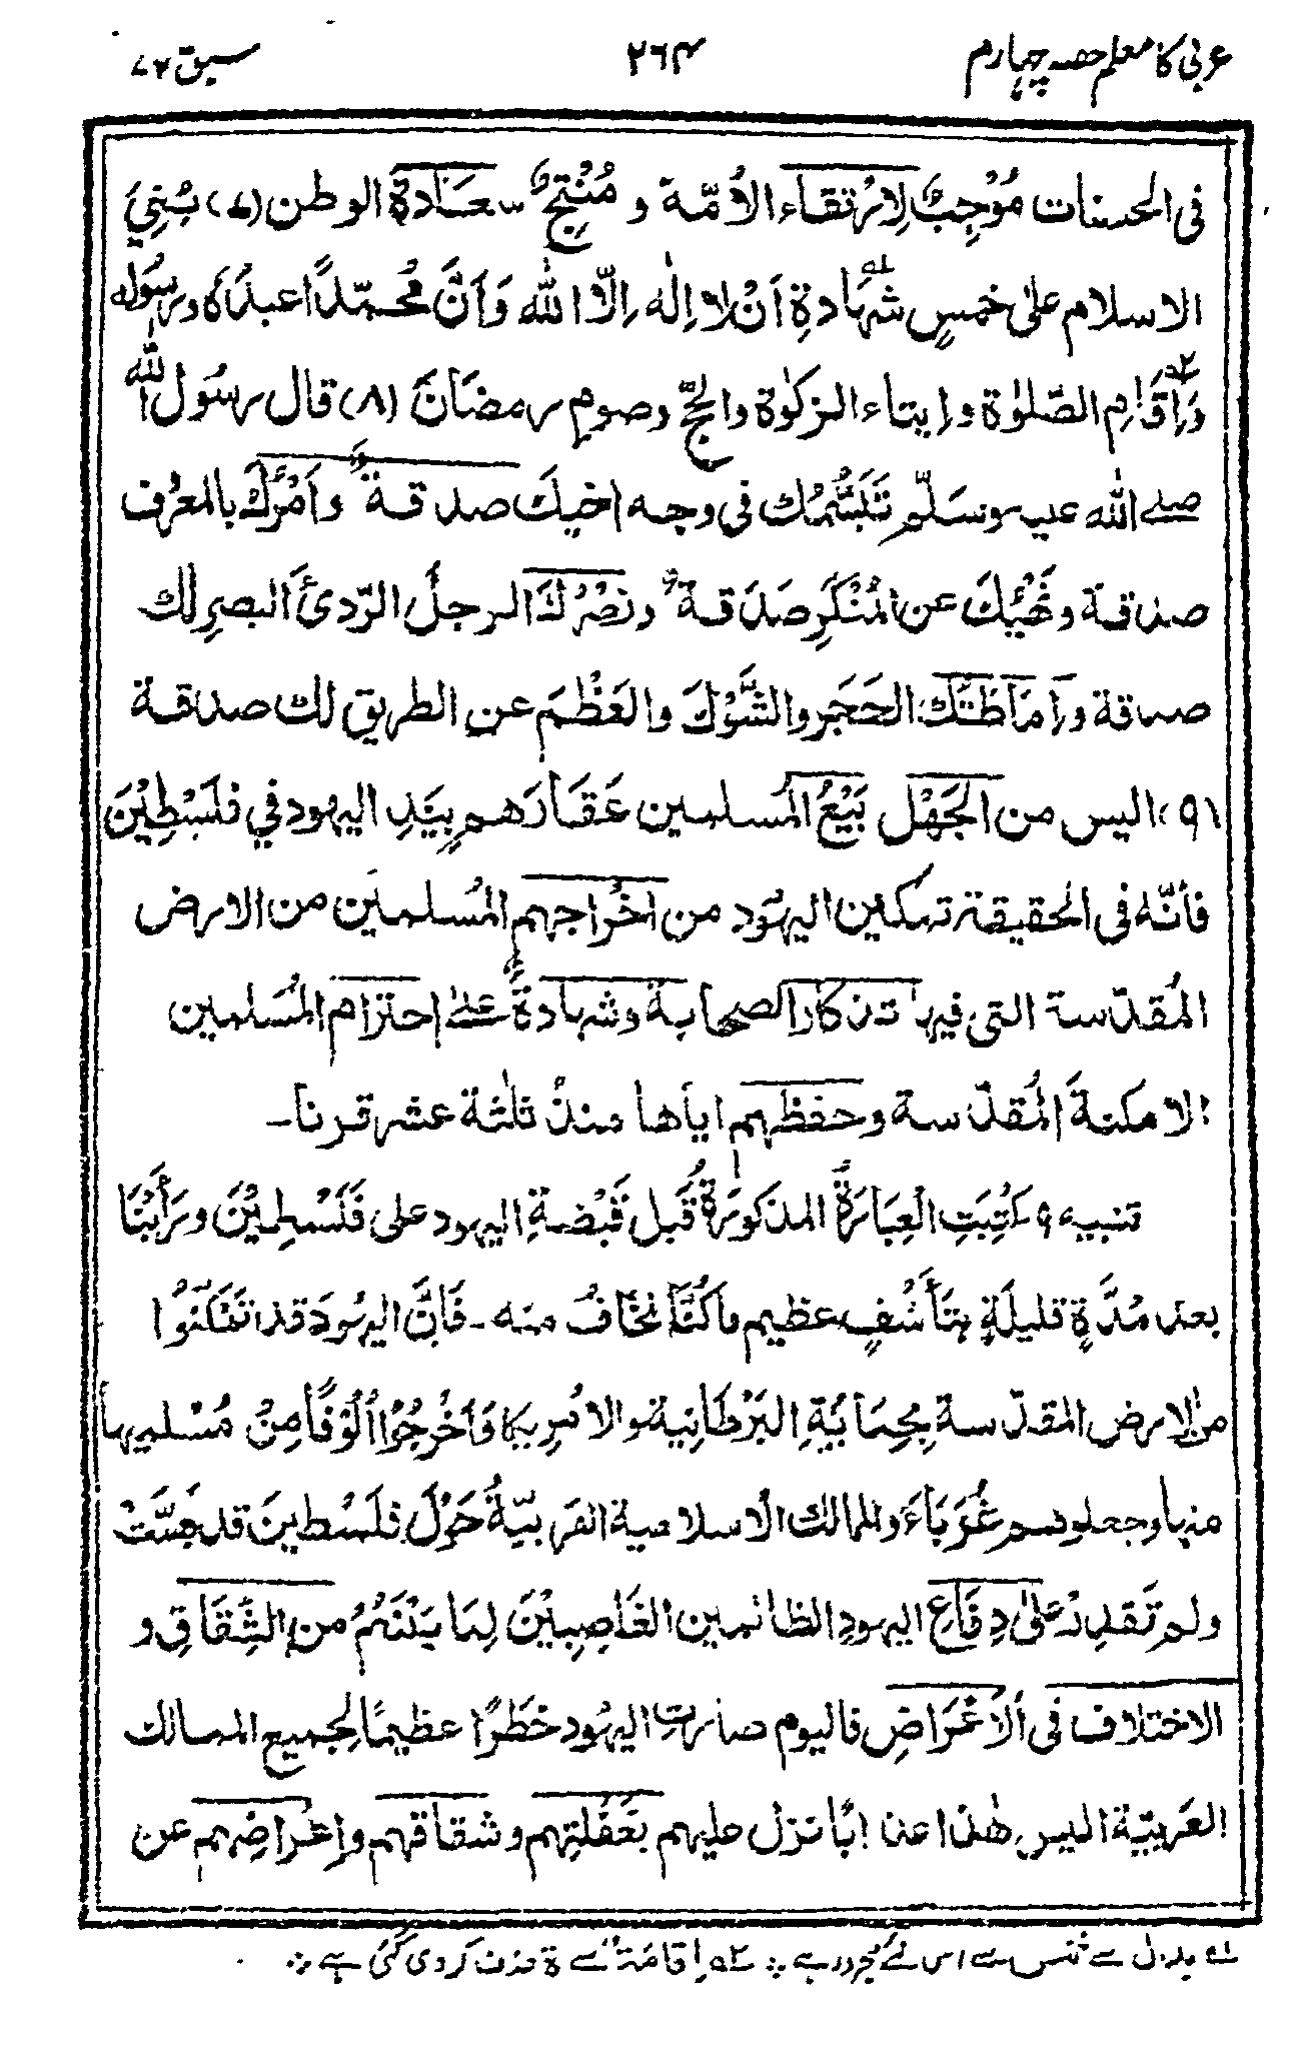 عربی کا معلم حصہ چہارم
۲۶۴
سبق ۷۲
فی الحسنات مُوْجِبٌ لِارْتقَاء الاُمّة و مُنْتِجٌ سعَادة الوطن (۷) بُنِيَ
الاسلام علیٰ خمسٍ شَهَادةِ اَنْ لا اِلٰه اِلّا اللّٰه وَاَنَّ مُحمّدًا عبدُهٗ ورسُوله
وَاِقَامِ الصّلوٰة وايتاء الزكوٰة والحجِّ وصومِ رمضَانَ (۸) قال رسُول اللّٰه
صلے اللّٰه علیہ وسَلّم تَبَسُّمُك فی وجه اخيكَ صدقةٌ وامْرُكَ بالمعرُف
صدقة ونَهْيُكَ عن المُنْكَرِ صَدَقةٌ ونصْرُكَ الرجلَ الرّدئَ البصرِ لك
صدقة واِمَاطَتُكَ الحَجَر والشَّوْكَ والعَظْمَ عن الطريق لك صدقة
(۹) اليس من الجَهْل بَيْعُ المُسلمين عَقَارَهم بِيَدِ اليهود في فلَسْطِيْنَ
فانّهٗ فی الحقيقة تمكين اليهُود من اخْراجهم المُسلمين من الارض
المُقدّسة التی فيها تذكار الصحابة وشهادةٌ علیٰ احترام المُسلمين
الامكنةَ المُقدّسة وحفظهم اياها منذُ ثلٰثة عشر قرنا۔
تنبيه ۹ كُتِبَتِ الْعِبَارَةُ المذكورَةُ قَبل قَبْضةِ اليهود علی فَلَسْطِيْنَ ورَأَيْنَا
بعد مُدَّةٍ قليلَةٍ بتَأَسُّفٍ عظيم ماكُنَّا نَخَافُ منه۔ فَاِنَّ اليهُودَ قد تَمَكَّنُوا
من الارض المقدّسة بِحِمَايَةِ البَرْطَانِية والامْرِيكا فَاَخْرجُوْا اُلُوْفًا مِنْ مُسْلميها
منها وجعلوهم غُرَبَاءَ والممالك الاسلامية العَربيّةُ حَوْلَ فلَسْطِينَ قد
ولم تَقدِرْ عَلیٰ دِفَاعِ اليهودِ الظالمين الغَاصِبِيْنَ لِمَا بَيْنَهُمْ من الشِّقَاقِ و
الاختلاف فی الاَغْرَاضِ فاليوم صارت اليهُود خَطَرًا عظيمًا لجميع الممالك
العَربيّة اليس هٰذا عذابًا نزل عليهم بغَفْلَتِهم وشقاقهم واِعْراضِهم عن
لہ بدل ہے خمس سے اس لئے مجرور ہے ۔ لہ اِقَامَۃ سے ۃ حذف کر دی گئی ہے